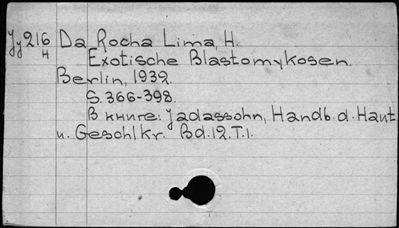 Jy216 Da Rocha Lima, H.
н Exotische Blastomykosen.
Berlin, 1932.
S. 366-398.
В книге: Jadassohn, Handb. d. Haut
u. Geschlkr. Bd. 12. T. 1.